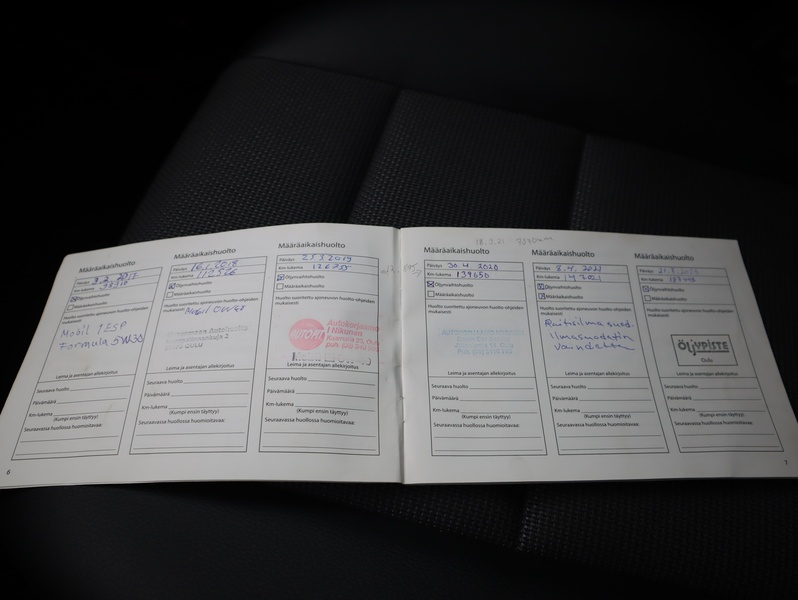 Määräaikaishuolto
Päiväys
Km-lukema
Öljynvaihtohuolto
Määräaikaishuolto
Huolto suoritettu ajoneuvon huolto-ohjeiden
mukaisesti
Mobil 1 ESP
Formula 5W30
Leima ja asentajan allekirjoitus
Seuraava huolto
Päivämäärä
Km-lukema
(Kumpi ensin täyttyy)
Seuraavassa huollossa huomioitavaa:
6
Määräaikaishuolto
Päiväys 2018
Km-lukema
Öljynvaihtohuolto
Määräaikaishuolto
Huolto suoritettu ajoneuvon huolto-ohjeiden
mukaisesti Mobil
Leima ja asentajan allekirjoitus
Seuraava huolto
Päivämäärä
Km-lukema
(Kumpi ensin täyttyy)
Seuraavassa huollossa huomioitavaa:
Määräaikaishuolto
Päiväys 2019
Km-lukema 126755
Öljynvaihtohuolto
Määräaikaishuolto
Huolto suoritettu ajoneuvon huolto-ohjeiden
mukaisesti
Autokorjaamo
Leima ja asentajan allekirjoitus
Seuraava huolto
Päivämäärä
Km-lukema
(Kumpi ensin täyttyy)
Seuraavassa huollossa huomioitavaa:
Määräaikaishuolto
Päiväys 30.4 2020
Km-lukema 139650
Öljynvaihtohuolto
Määräaikaishuolto
Huolto suoritettu ajoneuvon huolto-ohjeiden
mukaisesti
Leima ja asentajan allekirjoitus
Seuraava huolto
Päivämäärä
Km-lukema
(Kumpi ensin täyttyy)
Seuraavassa huollossa huomioitavaa:
Määräaikaishuolto
Päiväys 8.4. 2021
Km-lukema
Öljynvaihtohuolto
Määräaikaishuolto
Huolto suoritettu ajoneuvon huolto-ohjeiden
mukaisesti
Raitisilma suod.
Ilmasuodatin
vaihdettu
Leima ja asentajan allekirjoitus
Seuraava huolto
Päivämäärä
Km-lukema
(Kumpi ensin täyttyy)
Seuraavassa huollossa huomioitavaa:
Määräaikaishuolto
Päiväys
Km-lukema
Öljynvaihtohuolto
Määräaikaishuolto
Huolto suoritettu ajoneuvon huolto-ohjeiden
mukaisesti
ÖLJYPISTE
Oulu
Leima ja asentajan allekirjoitus
Seuraava huolto
Päivämäärä
Km-lukema
(Kumpi ensin täyttyy)
Seuraavassa huollossa huomioitavaa:
7